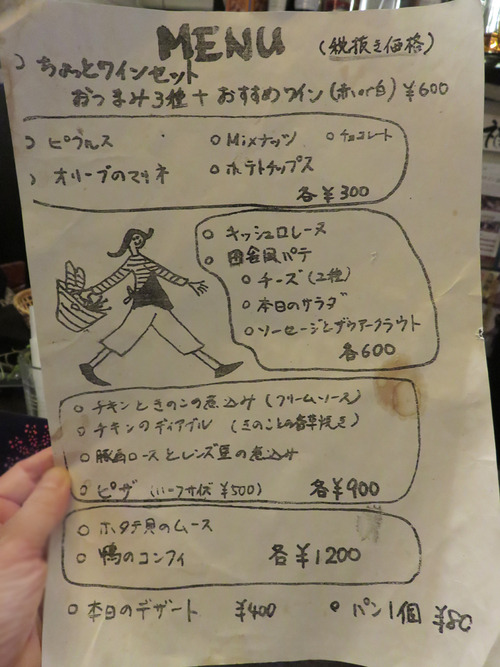 MENU (税抜き価格)
○ ちょっとワインセット
おつまみ3種+おすすめワイン(赤or白) ¥600
○ ピクルス ○ Mixナッツ ○ チョコレート
○ オリーブのマリネ ○ ポテトチップス
各¥300
○ キッシュロレーヌ
○ 田舎風パテ
○ チーズ(2種)
○ 本日のサラダ
○ ソーセージとザウアークラウト
各600
○ チキンときのこの煮込み(クリームソース)
○ チキンのディアブル(きのことの香草焼き)
○ 豚肩ロースとレンズ豆の煮込み
○ ピザ(ハーフサイズ ¥500) 各¥900
○ ホタテ貝のムース
○ 鴨のコンフィ 各¥1200
○ 本日のデザート ¥400 ○ パン1個 ¥80